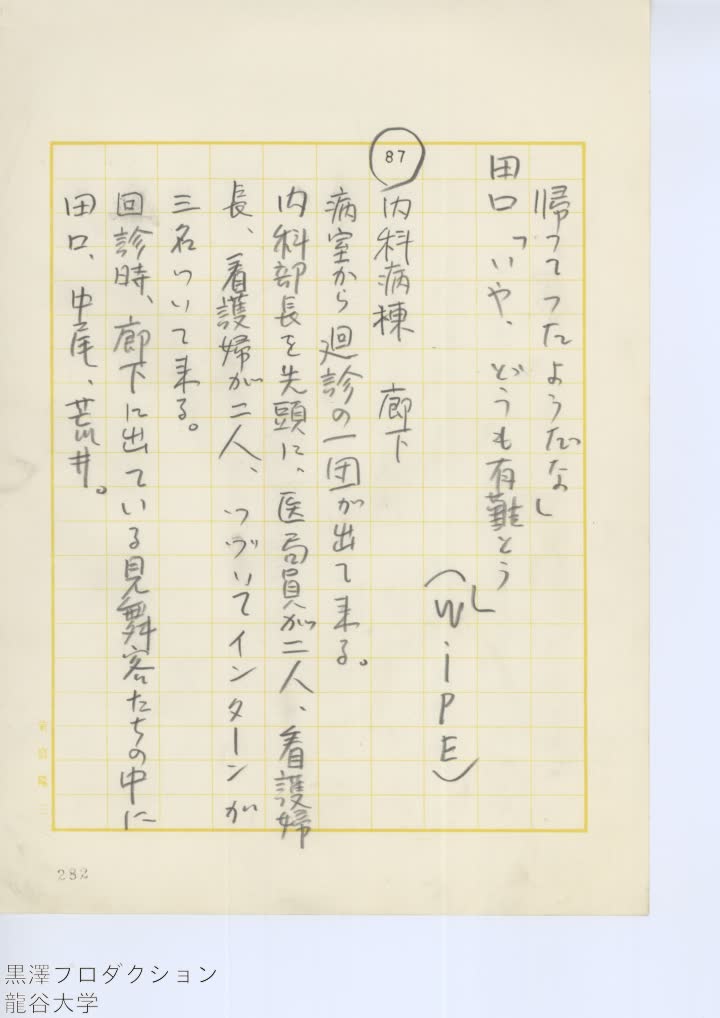 帰ってつたようだな」
田口「いや、どうも有難とう」
(WiPE)
87
内科病棟　廊下
病室から廻診の一団が出て来る。
内科部長を先頭に、医局員が二人、看護婦
長、看護婦が二人、つづいてインターンが
三名ついて来る。
回診時、廊下に出ている見舞客たちの中に
田口、中尾、荒井。
282
黒澤プロダクション
龍谷大学